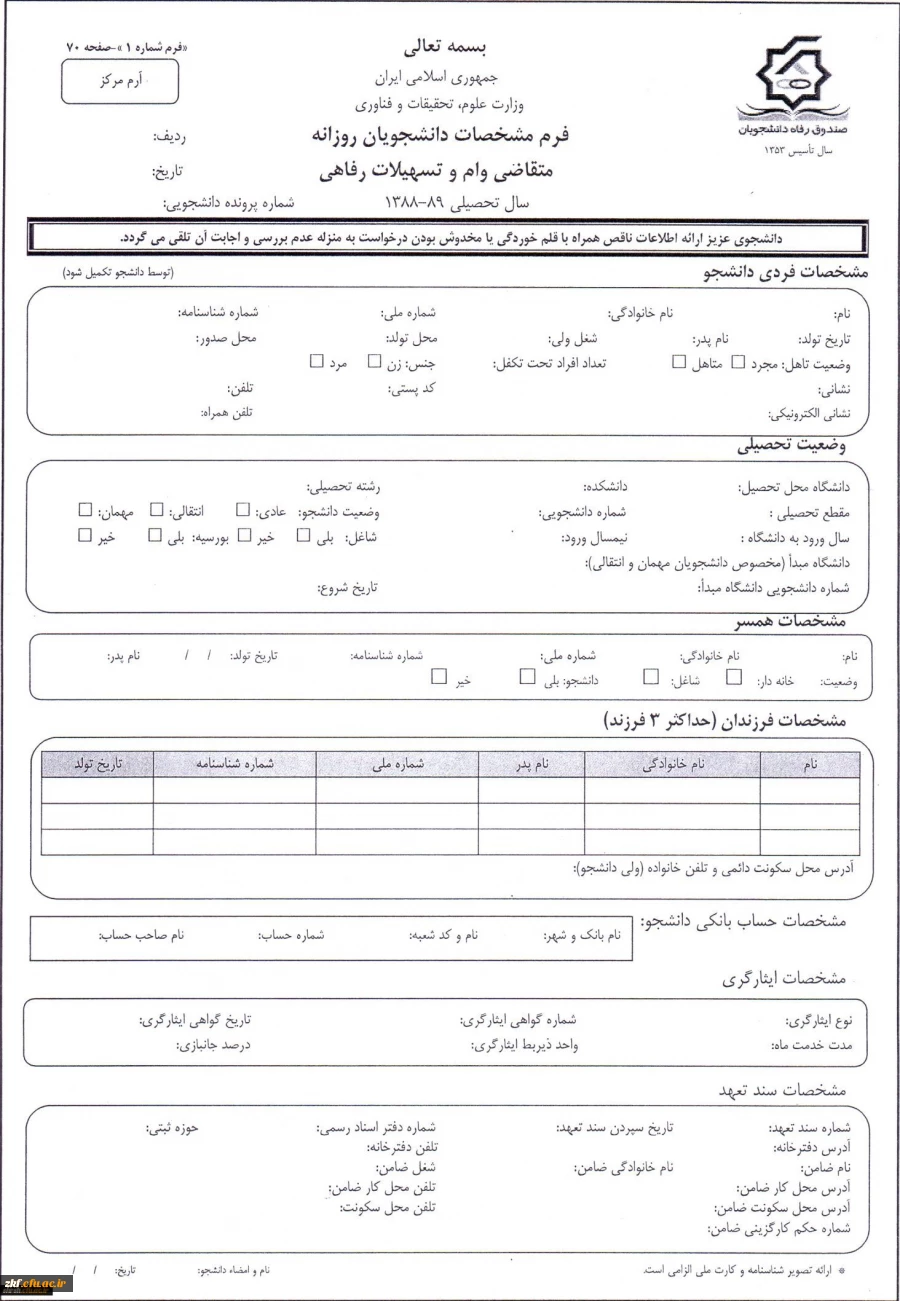 بسمه تعالی
«فرم شماره ۱»-صفحه ۷۰
جمهوری اسلامی ایران
آرم مرکز
وزارت علوم، تحقیقات و فناوری
صندوق رفاه دانشجویان
سال تأسیس ۱۳۵۳
فرم مشخصات دانشجویان روزانه
ردیف:
متقاضی وام و تسهیلات رفاهی
تاریخ:
سال تحصیلی ۸۹-۱۳۸۸
شماره پرونده دانشجویی:
دانشجوی عزیز ارائه اطلاعات ناقص همراه با قلم خوردگی یا مخدوش بودن درخواست به منزله عدم بررسی و اجابت آن تلقی می گردد.
مشخصات فردی دانشجو (توسط دانشجو تکمیل شود)
نام: نام خانوادگی: شماره ملی: شماره شناسنامه:
تاریخ تولد: نام پدر: شغل ولی: محل تولد: محل صدور:
وضعیت تاهل: مجرد □ متاهل □ تعداد افراد تحت تکفل: جنس: زن □ مرد □
نشانی: کد پستی: تلفن:
نشانی الکترونیکی: تلفن همراه:
وضعیت تحصیلی
دانشگاه محل تحصیل: دانشکده: رشته تحصیلی:
مقطع تحصیلی : شماره دانشجویی: وضعیت دانشجو: عادی: □ انتقالی: □ مهمان: □
سال ورود به دانشگاه : نیمسال ورود: شاغل: بلی □ خیر □ بورسیه: بلی □ خیر □
دانشگاه مبدأ (مخصوص دانشجویان مهمان و انتقالی):
شماره دانشجویی دانشگاه مبدأ: تاریخ شروع:
مشخصات همسر
نام: نام خانوادگی: شماره ملی: شماره شناسنامه: تاریخ تولد: / / نام پدر:
وضعیت: خانه دار: □ شاغل: □ دانشجو: بلی □ خیر □
مشخصات فرزندان (حداکثر ۳ فرزند)
نام نام خانوادگی نام پدر شماره ملی شماره شناسنامه تاریخ تولد
آدرس محل سکونت دائمی و تلفن خانواده (ولی دانشجو):
مشخصات حساب بانکی دانشجو:
نام بانک و شهر: نام و کد شعبه: شماره حساب: نام صاحب حساب:
مشخصات ایثارگری
نوع ایثارگری: شماره گواهی ایثارگری: تاریخ گواهی ایثارگری:
مدت خدمت ماه: واحد ذیربط ایثارگری: درصد جانبازی:
مشخصات سند تعهد
شماره سند تعهد: تاریخ سپردن سند تعهد: شماره دفتر اسناد رسمی: حوزه ثبتی:
آدرس دفترخانه: تلفن دفترخانه:
نام ضامن: نام خانوادگی ضامن: شغل ضامن:
آدرس محل کار ضامن: تلفن محل کار ضامن:
آدرس محل سکونت ضامن: تلفن محل سکونت:
شماره حکم کارگزینی ضامن:
* ارائه تصویر شناسنامه و کارت ملی الزامی است. نام و امضاء دانشجو: تاریخ: / /
zkf.cfu.ac.ir